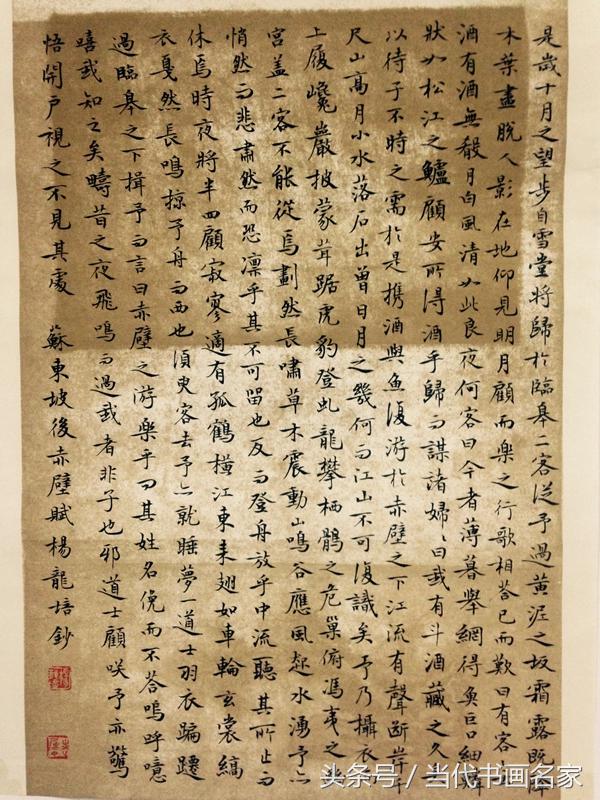 是歲十月之望步自雪堂將歸於臨皋二客從予過黃泥之坂霜露既降
木葉盡脫人影在地仰見明月顧而樂之行歌相荅已而歎曰有客無
酒有酒無殽月白風清如此良夜何客曰今者薄暮舉網得魚巨口細鱗
狀如松江之鱸顧安所得酒乎歸而謀諸婦〻曰我有斗酒藏之久矣
以待子不時之需於是攜酒與魚復游於赤壁之下江流有聲斷岸千
尺山高月小水落石出曾日月之幾何而江山不可復識矣予乃攝衣而
上履巉巖披蒙茸踞虎豹登虬龍攀栖鶻之危巢俯馮夷之幽
宮蓋二客不能從焉劃然長嘯草木震動山鳴谷應風起水湧予亦
悄然而悲肅然而恐凜乎其不可留也反而登舟放乎中流聽其所止而
休焉時夜將半四顧寂寥適有孤鶴橫江東來翅如車輪玄裳縞
衣戛然長鳴掠予舟而西也須臾客去予亦就睡夢一道士羽衣蹁躚
過臨皋之下揖予而言曰赤壁之游樂乎問其姓名俛而不荅嗚呼噫
嘻我知之矣疇昔之夜飛鳴而過我者非子也邪道士顧咲予亦驚
悟開戶視之不見其處 蘇東坡後赤壁賦楊龍培鈔
头条号／当代书画名家